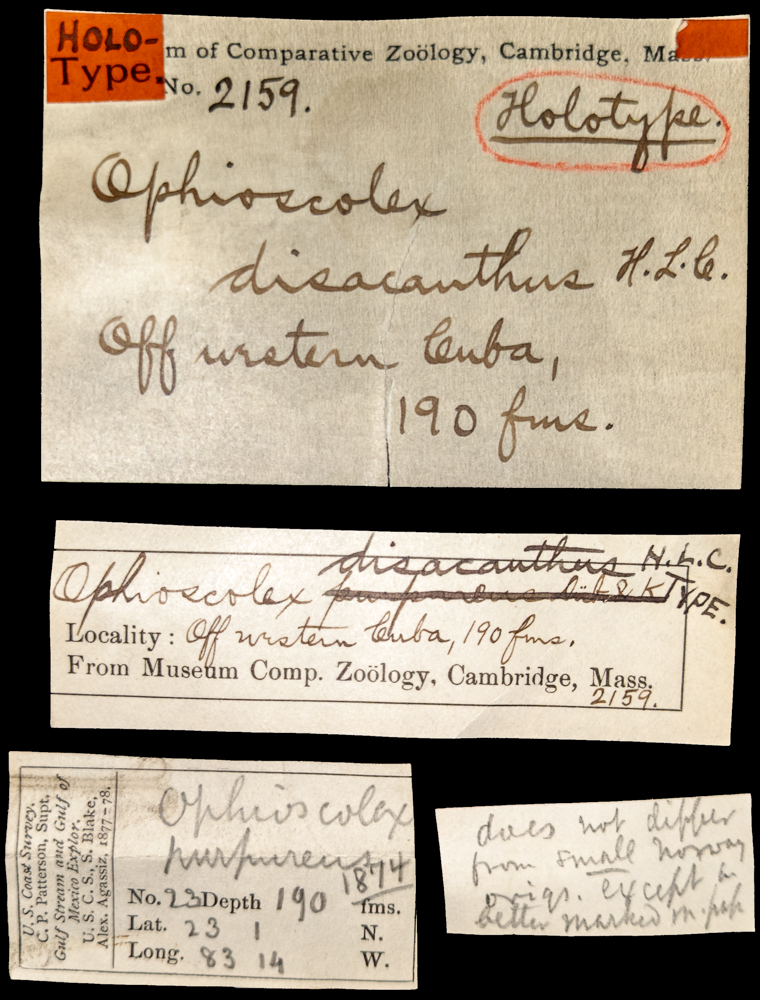 HOLO-
Type.
m of Comparative Zoölogy, Cambridge, Mass.
No. 2159.
Holotype.
Ophioscolex
disacanthus H.L.C.
Off western Cuba,
190 fms.
disacanthus H.L.C.
Ophioscolex purpureus Düb & K TYPE.
Locality: Off western Cuba, 190 fms.
From Museum Comp. Zoölogy, Cambridge, Mass.
2159.
U.S. Coast Survey.
C. P. Patterson, Supt.
Gulf Stream and Gulf of
Mexico Explor.
U. S. C. S., S. Blake,
Alex. Agassiz, 1877-78.
Ophioscolex
purpureus
1874
No. 23 Depth 190 fms.
Lat. 23 1 N.
Long. 83 14 W.
does not differ
from small Norway
origs. except in
better marked m. pap